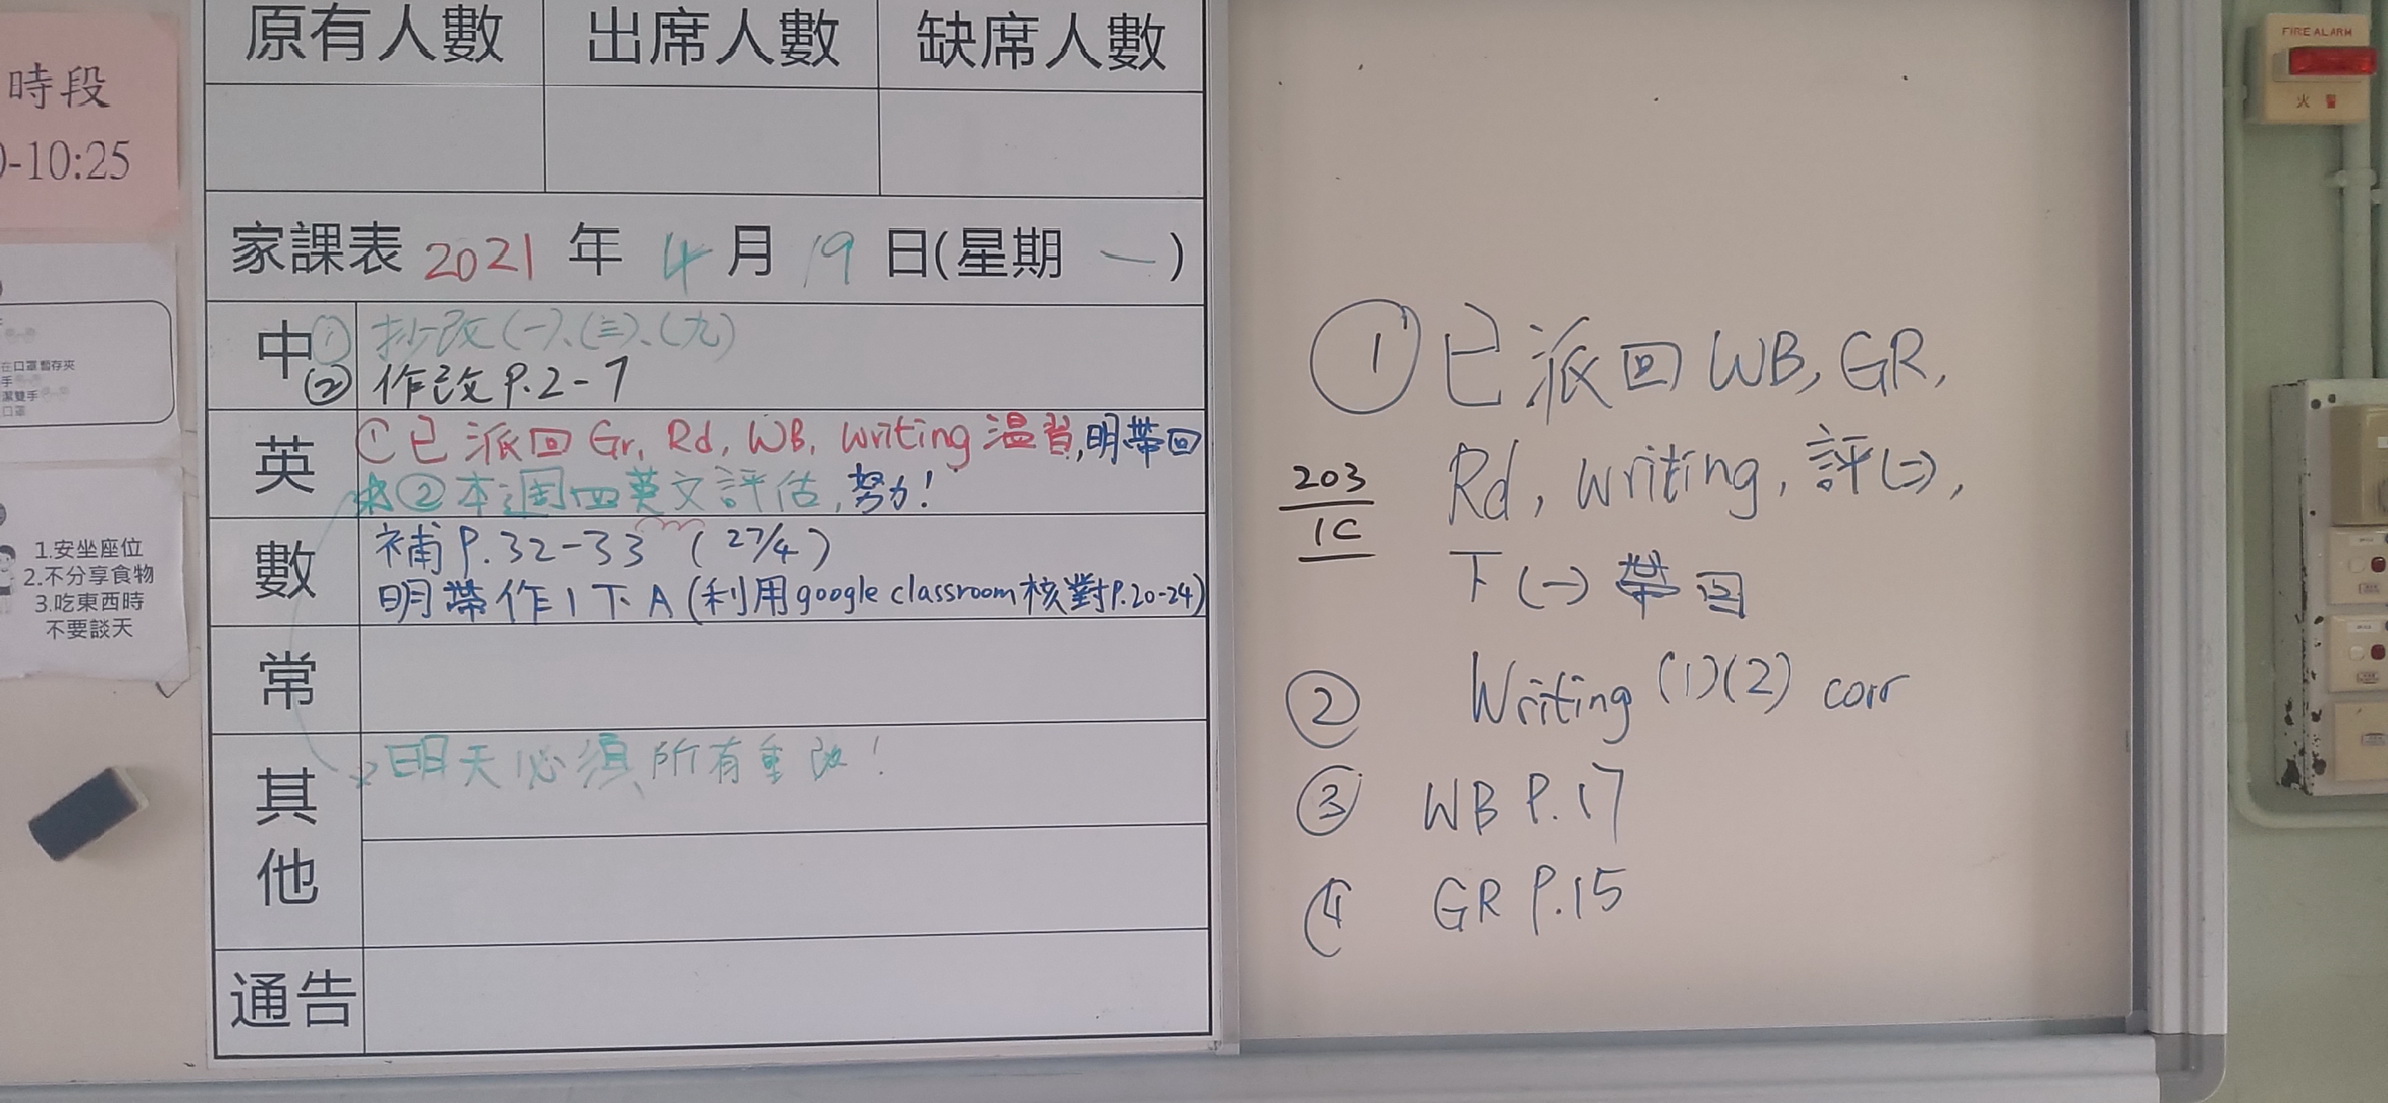 時段
0-10:25
在口罩暫存夾
手
潔雙手
口罩
1.安坐座位
2.不分享食物
3.吃東西時
不要談天
原有人數 出席人數 缺席人數
家課表 2021 年 4 月 19 日(星期 一)
中 ① 抄改(一)、(三)、(九)
② 作改 P.2-7
英 ① 已派回 Gr, Rd, WB, writing 温習,明帶回
② 本週四英文評估,努力!
數 補 P.32-33 (27/4)
明帶作1下A(利用google classroom核對P.20-24)
常
其他 明天必須所有重改!
通告
① 已派回 WB, GR,
Rd, writing, 評(二),
下(一) 帶回
203
1C
② Writing (1)(2) corr
③ WB P.17
④ GR P.15
FIRE ALARM
火警